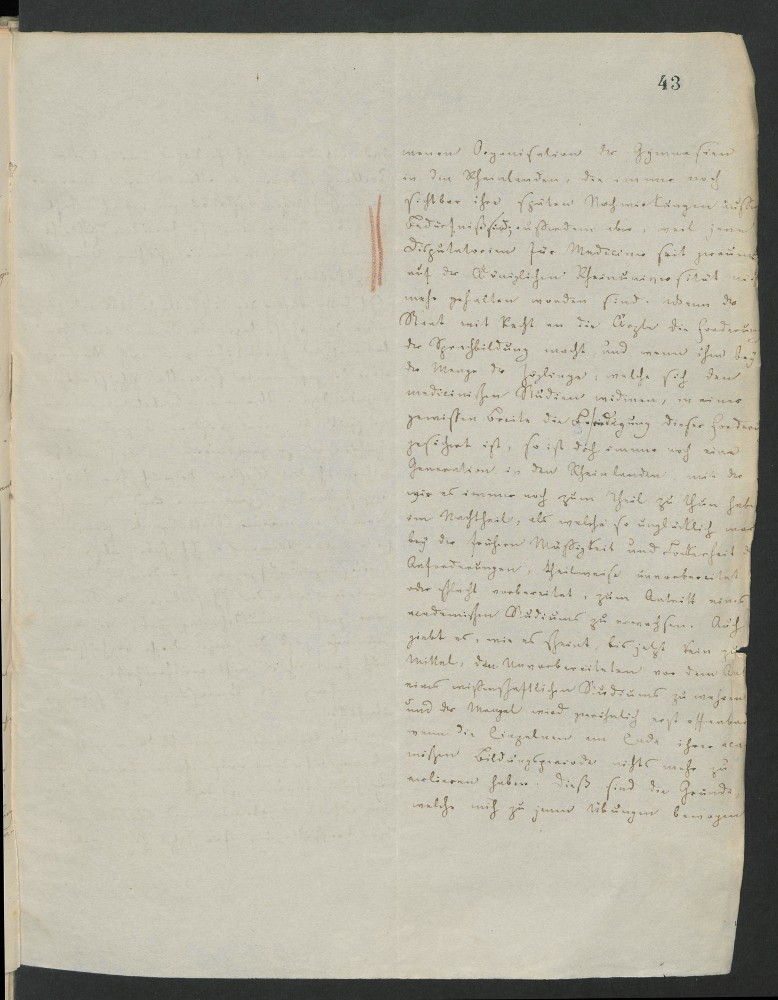 43
neuen Organisation der Gymnasien
in den Rheinlanden, die immer noch
sichtbar ihre späten Nachwirkungen
Bedürfniß sind; außerdem aber, weil jene
Disputatorien für Mediciner seit
auf der Königlichen Rheinuniversität
mehr gehalten worden sind. Wenn der
Staat mit Recht an die Ärzte die
der Sprachbildung macht und wenn ihm bey
der Menge der Zöglinge, welche sich dem
medicinischen Studium widmen, in einer
gewissen Breite die dieser
gesichert ist, so ist doch immer noch eine
Generation in den Rheinlanden, mit der
wir es immer noch zum Theil zu thun haben
im Nachtheil, als welche so unglücklich war
bey der frühern Mäßigkeit und Lockerheit
Anforderungen, theilweise unvorbereitet
oder schlecht vorbereitet, zum Antritt eines
academischen Studiums zu erwachsen. Auch
giebt es, wie es scheint, bis jetzt kein
Mittel, den Unvorbereiteten vor dem
eines wissenschaftlichen Studiums zu wahren
und der Mangel wird gewöhnlich erst offenbar
wenn die Einzelnen am Ende ihrer
mischen Bildungsperiode nichts mehr zu
verlieren haben. Dieß sind die Gründe,
welche mich zu jenen Übungen bewogen